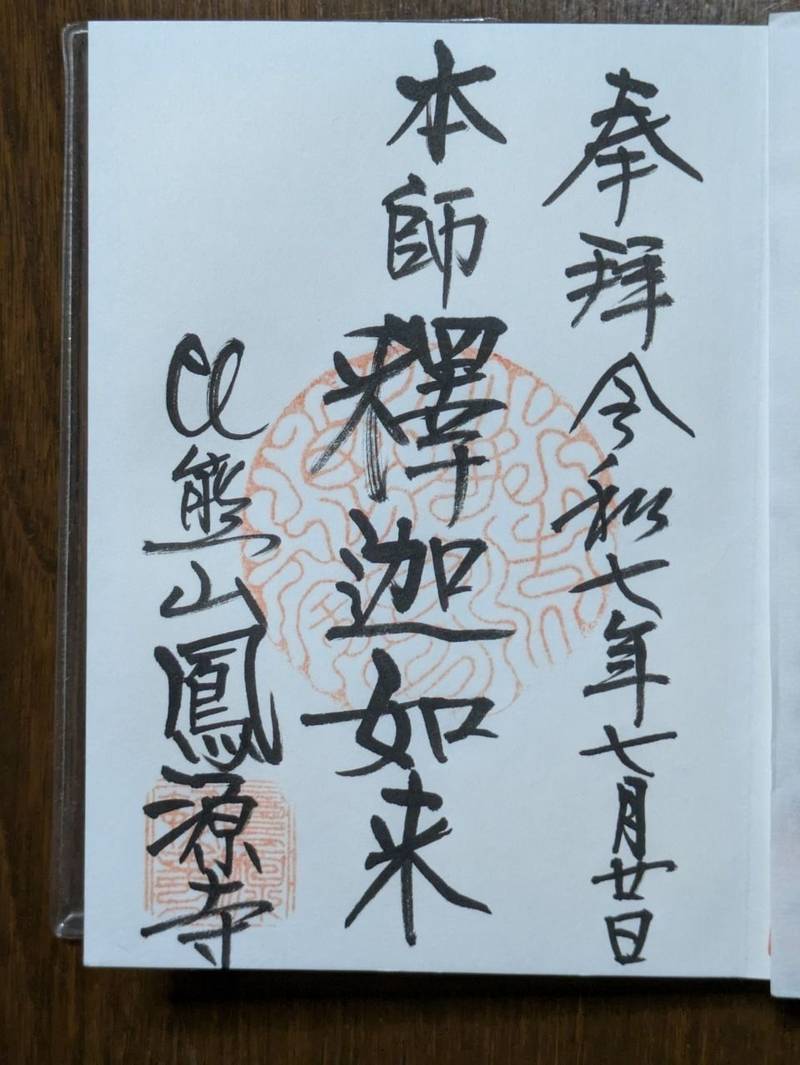 奉拝 令和七年七月廿日
本師釋迦如来
比熊山鳳源寺